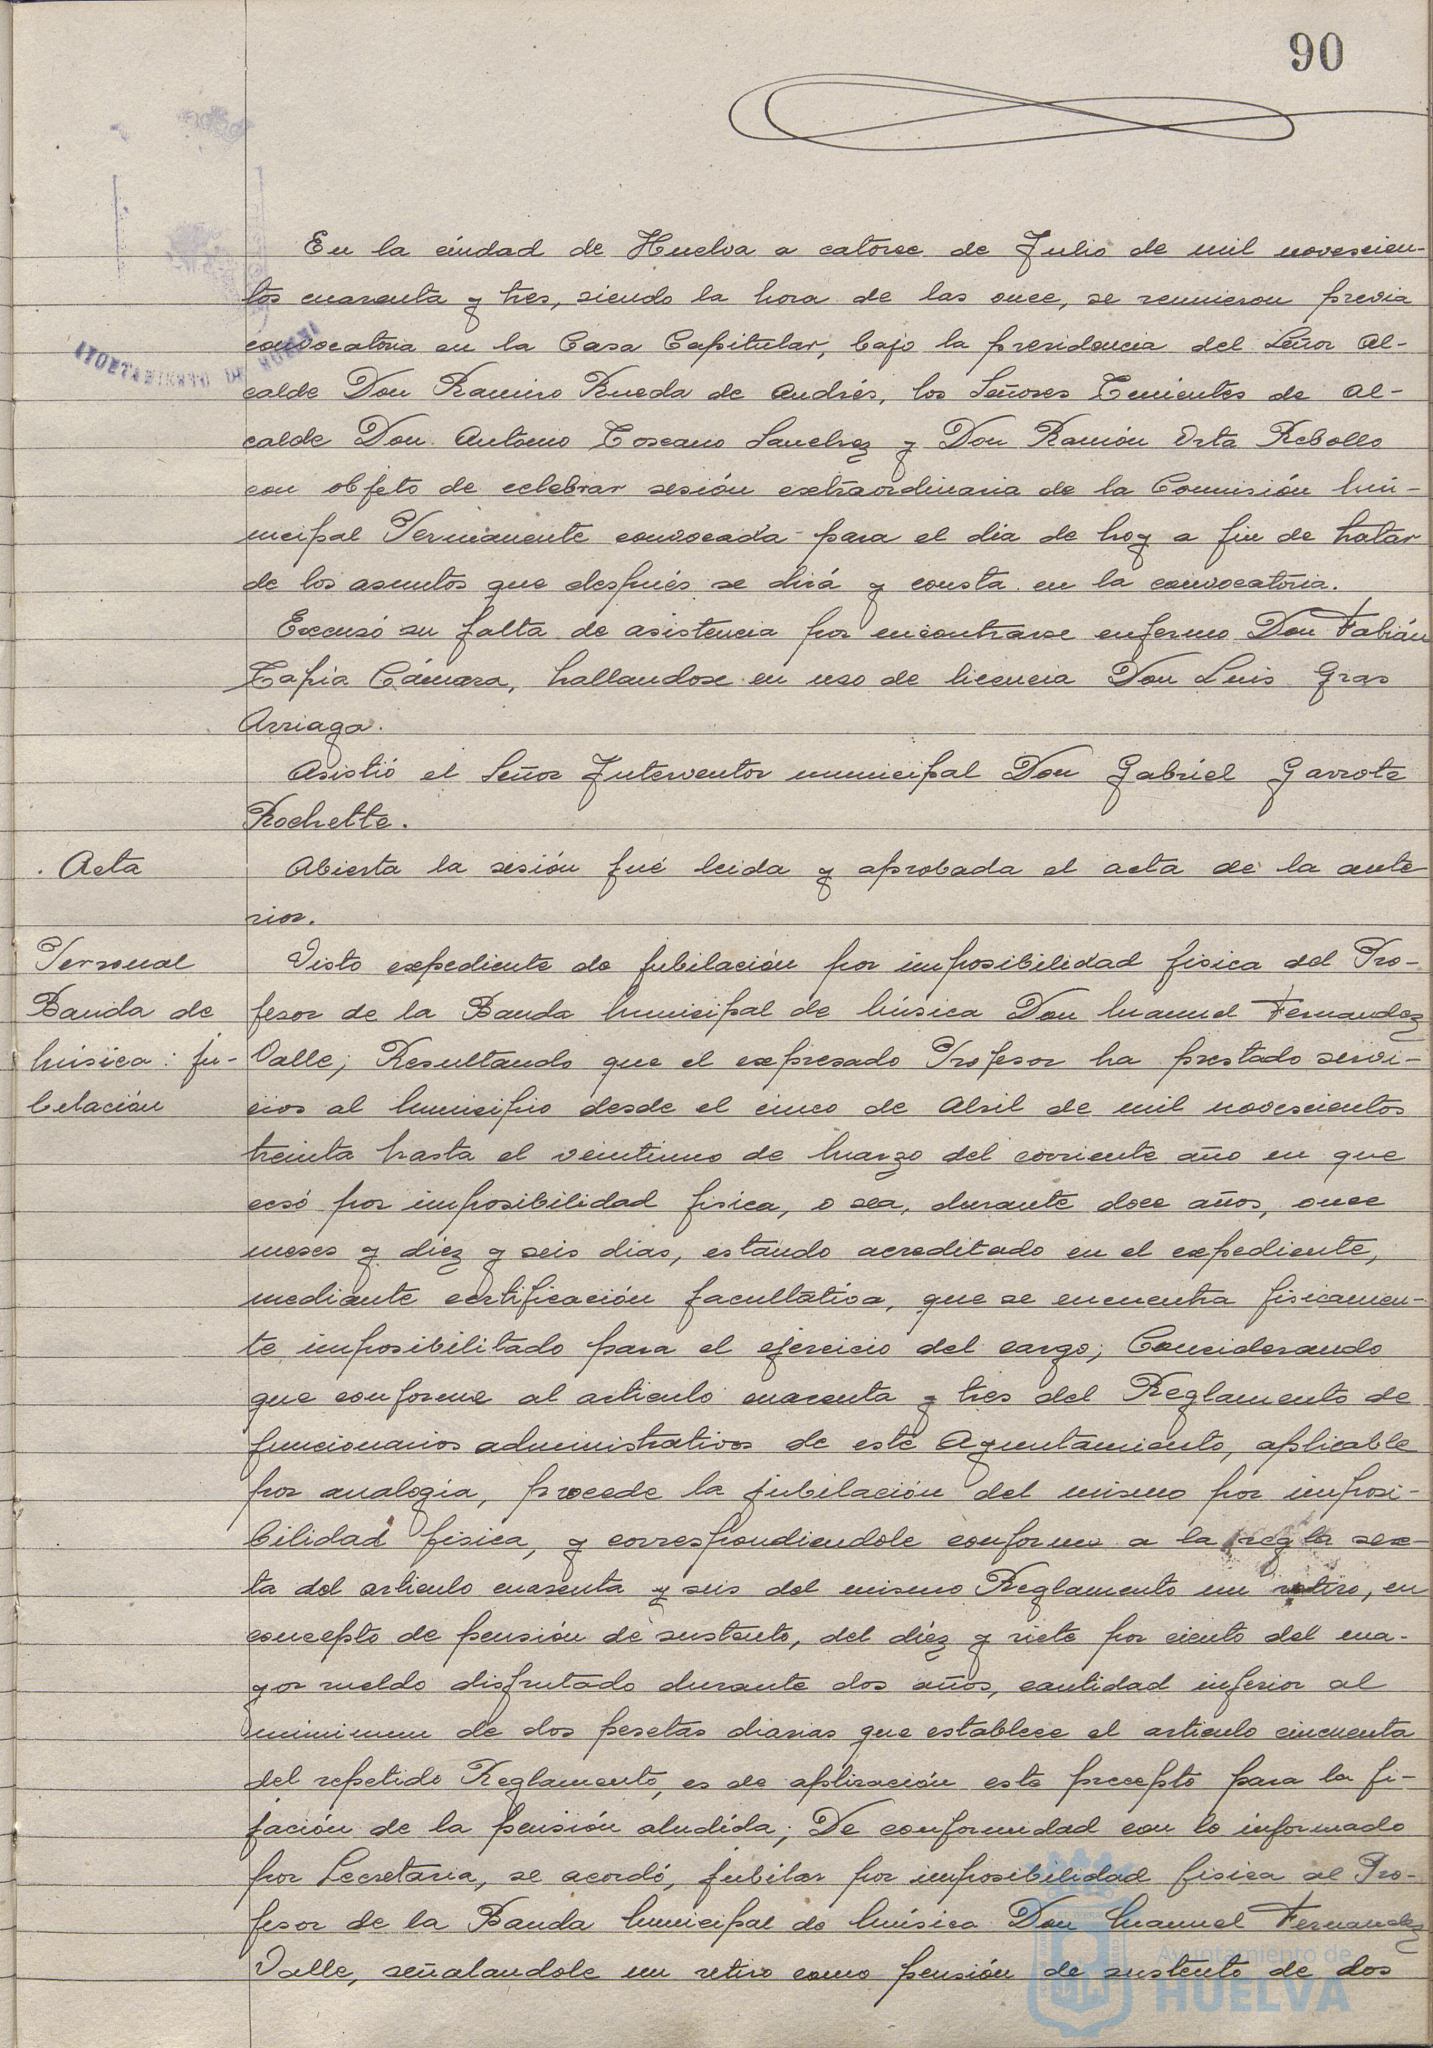 90
En la ciudad de Huelva a catorce de Julio de mil novescien-
tos cuarenta y tres, siendo la hora de las once, se reunieron previa
convocatoria en la Casa Capitular, bajo la presidencia del Señor Al-
AYUNTAMIENTO DE HUELVA
calde Don Ramiro Rueda de Andrés, los Señores Tenientes de Al-
calde Don Antonio Toscano Sanchez y Don Ramón Orta Rebollo
con objeto de celebrar sesión extraordinaria de la Comisión Mu-
nicipal Permanente convocada para el dia de hoy a fin de tratar
de los asuntos que después se dirá y consta en la convocatoria.
Excusó su falta de asistencia por encontrarse enfermo Don Fabián
Tapia Cámara, hallandose en uso de licencia Don Luis Gras
Arriaga.
Asistió el Señor Interventor municipal Don Gabriel Garrote
Rochette.
. Acta
Abierta la sesión fué leida y aprobada el acta de la ante
rior.
Personal
Banda de
Música: ju-
bilación
Visto expediente de jubilación por imposibilidad fisica del Pro-
fesor de la Banda Municipal de Música Don Manuel Fernandez
Valle; Resultando que el expresado Profesor ha prestado servi-
cios al Municipio desde el cinco de Abril de mil novescientos
treinta hasta el veintiuno de Marzo del corriente año en que
cesó por imposibilidad fisica, o sea, durante doce años, once
meses y diez y seis dias, estando acreditado en el expediente,
mediante certificación facultativa, que se encuentra fisicamen-
te imposibilitado para el ejercicio del cargo; Considerando
que conforme al articulo cuarenta y tres del Reglamento de
funcionarios administrativos de este Ayuntamiento, aplicable
por analogia, procede la jubilación del mismo por imposi-
bilidad fisica, y correspondiendole conforme a la regla sex-
ta del articulo cuarenta y seis del mismo Reglamento un retiro, en
concepto de pensión de sustento, del diez y siete por ciento del ma-
yor sueldo disfrutado durante dos años, cantidad inferior al
minimum de dos pesetas diarias que establece el articulo cincuenta
del repetido Reglamento, es de aplicación este precepto para la fi-
jación de la pensión aludida; De conformidad con lo informado
por Secretaria, se acordó, jubilar por imposibilidad fisica al Pro-
fesor de la Banda Municipal de Música Don Manuel Fernandez
Valle, señalandole un retiro como pensión de sustento de dos
Ayuntamiento de
HUELVA